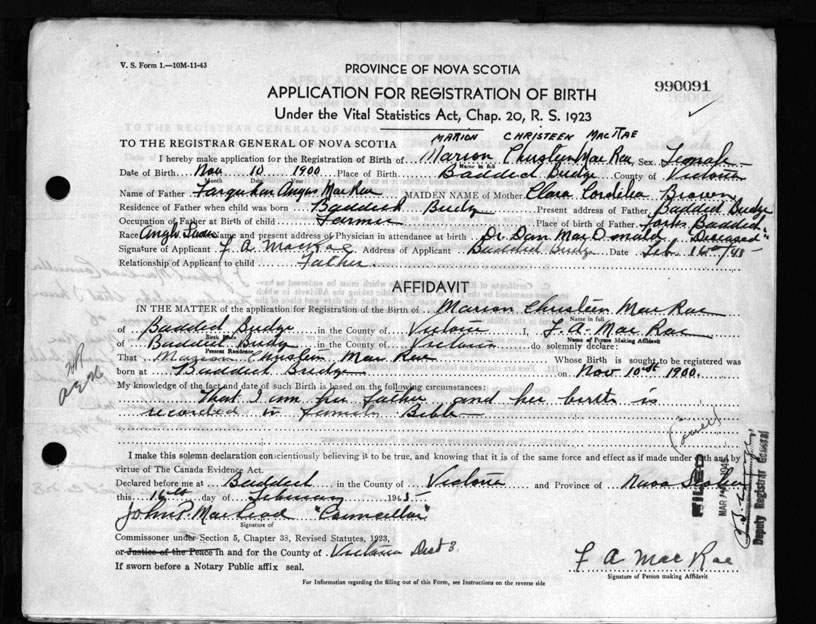 V. S. Form 1.—10M-11-43
PROVINCE OF NOVA SCOTIA
APPLICATION FOR REGISTRATION OF BIRTH
990091
Under the Vital Statistics Act, Chap. 20, R. S. 1923
MARION CHRISTEEN MACRAE
TO THE REGISTRAR GENERAL OF NOVA SCOTIA
I hereby make application for the Registration of Birth of Marion Christeen Mac Rae, Sex Female
Name in full
Date of Birth Nov 10 1900 Place of Birth Baddeck Bridge County of Victoria
Month Date Year
Name of Father Farquhar Angus MacRae MAIDEN NAME of Mother Clara Cordilia Brown
Residence of Father when child was born Baddeck Bridge Present address of Father Baddeck Bridge
Occupation of Father at Birth of child Farmer Place of Birth of Father Forks Baddeck
Race and present address of Physician in attendance at birth Dr. Dan MacDonald Deceased
Signature of Applicant F. A MacRae Address of Applicant Baddeck Bridge Date Feb. 16th/45
Relationship of Applicant to child Father
AFFIDAVIT
IN THE MATTER of the application for Registration of the Birth of Marion Christeen Mac Rae
Name in full
of Baddeck Bridge in the County of Victoria I, F. A. Mac Rae
Birth Place Name of Person Making Affidavit
of Baddeck Bridge in the County of Victoria do solemnly declare:
Present Residence
That Marion Christeen Mac Rae Whose Birth is sought to be registered was
born at Baddeck Bridge on Nov 10th 1900.
My knowledge of the fact and date of such Birth is based on the following circumstances:
That I am her father and her birth is
recorded in family Bible
I make this solemn declaration conscientiously believing it to be true, and knowing that it is of the same force and effect as if made under oath and by
virtue of The Canada Evidence Act.
Declared before me at Baddeck in the County of Victoria and Province of Nova Scotia
this 16th day of February 1945
John P. MacLeod "Councillor"
Signature of
Commissioner under Section 5, Chapter 38, Revised Statutes, 1923,
or Justice of the Peace in and for the County of Victoria Dist 3
If sworn before a Notary Public affix seal.
F A Mac Rae
Signature of Person making Affidavit
For Information regarding the filling out of this Form, see Instructions on the reverse side
FILED
MAR 1945
Deputy Registrar General